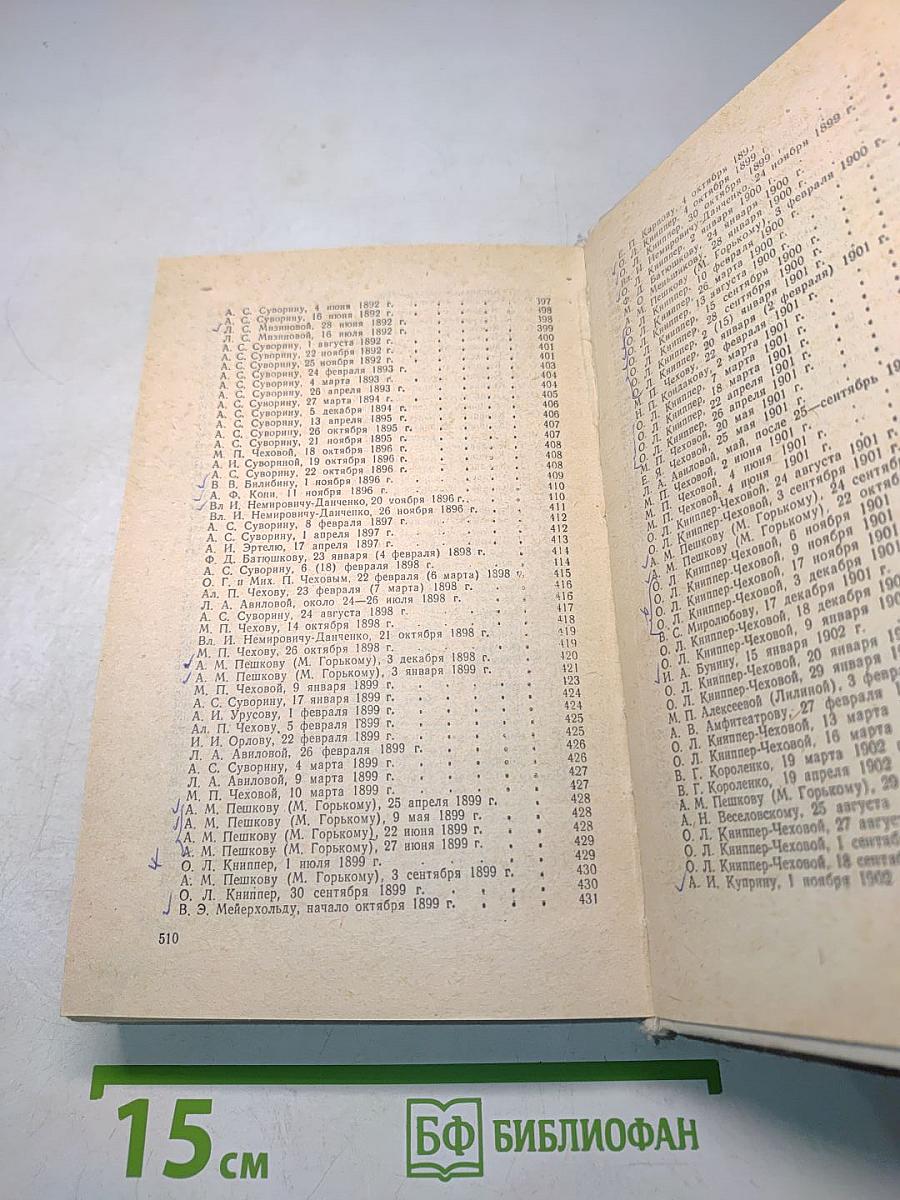 А. С. Суворину, 4 июня 1892 г. 397
А. С. Суворину, 16 июня 1892 г. 398
Л. С. Мизиновой, 28 июня 1892 г. 398
Л. С. Мизиновой, 16 июля 1892 г. 399
А. С. Суворину, 1 августа 1892 г. 400
А. С. Суворину, 22 ноября 1892 г. 401
А. С. Суворину, 25 ноября 1892 г. 401
А. С. Суворину, 24 февраля 1893 г. 403
А. С. Суворину, 4 марта 1893 г. 404
А. С. Суворину, 26 апреля 1893 г. 404
А. С. Суворину, 27 марта 1894 г. 405
А. С. Суворину, 5 декабря 1894 г. 406
А. С. Суворину, 13 апреля 1895 г. 406
А. С. Суворину, 26 октября 1895 г. 407
А. С. Суворину, 21 ноября 1895 г. 407
М. П. Чеховой, 18 октября 1896 г. 408
А. И. Сувориной, 19 октября 1896 г. 408
А. С. Суворину, 22 октября 1896 г. 408
В. В. Билибину, 1 ноября 1896 г. 409
А. Ф. Кони, 11 ноября 1896 г. 410
Вл И. Немировичу-Данченко, 20 ноября 1896 г. 410
Вл. И. Немировичу-Данченко, 26 ноября 1896 г. 411
А. С. Суворину, 8 февраля 1897 г. 412
А. С. Суворину, 1 апреля 1897 г. 412
А. И. Эртелю, 17 апреля 1897 г. 413
Ф. Д. Батюшкову, 23 января (4 февраля) 1898 г. 414
А. С. Суворину, 6 (18) февраля 1898 г. 414
О. Г. и Мих. П. Чеховым, 22 февраля (6 марта) 1898 г. 415
Ал. П. Чехову, 23 февраля (7 марта) 1898 г. 416
Л. А. Авиловой, около 24—26 июля 1898 г. 416
А. С. Суворину, 24 августа 1898 г. 417
М. П. Чехову, 14 октября 1898 г. 418
Вл. И. Немировичу-Данченко, 21 октября 1898 г. 419
М. П. Чехову, 26 октября 1898 г. 419
А. М. Пешкову (М. Горькому), 3 декабря 1898 г. 420
А. М. Пешкову (М. Горькому), 3 января 1899 г. 421
М. П. Чеховой, 9 января 1899 г. 123
А. С. Суворину, 17 января 1899 г. 424
А. И. Урусову, 1 февраля 1899 г. 424
Ал. П. Чехову, 5 февраля 1899 г. 425
И. И. Орлову, 22 февраля 1899 г. 425
Л. А. Авиловой, 26 февраля 1899 г. 426
А. С. Суворину, 4 марта 1899 г. 426
Л. А. Авиловой, 9 марта 1899 г. 427
М. П. Чеховой, 10 марта 1899 г. 427
А. М. Пешкову (М. Горькому), 25 апреля 1899 г. 428
А. М. Пешкову (М. Горькому), 9 мая 1899 г. 428
А. М. Пешкову (М. Горькому), 22 июня 1899 г. 428
А. М. Пешкову (М. Горькому), 27 июня 1899 г. 429
О. Л. Книппер, 1 июля 1899 г. 429
А. М. Пешкову (М. Горькому), 3 сентября 1899 г. 430
О. Л. Книппер, 30 сентября 1899 г. 430
В. Э. Мейерхольду, начало октября 1899 г. 431
510
Е. П. Карпову, 4 октября
О. Л. Книппер, 4 октября 1899 г.
О. Л. Книппер, 30 октября 1899 г.
Немировичу-Данченко, 24 ноября 1899 г.
О. Л. Книппер, 2 января 1900 г.
Батюшкову, 24 января 1900 г.
Меньшикову, 28 января 1900 г.
Пешкову (М. Горькому), 3 февраля 1900 г.
О. Л. Книппер, 10 февраля 1900 г.
О. Л. Книппер, 26 марта 1900 г.
О. Л. Книппер, 13 августа 1900 г.
О. Л. Книппер, 15 сентября 1900 г.
О. Л. Книппер, 28 сентября 1900 г.
О. Л. Книппер, 2 (15) января 1901 г.
О. Л. Книппер, 20 января (2 февраля) 1901 г.
М. П. Чехову, 22 февраля 1901 г.
Н. П. Кондакову, 2 марта 1901 г.
О. Л. Книппер, 2 марта 1901 г.
О. Л. Книппер, 18 марта 1901 г.
О. Л. Книппер, 22 апреля 1901 г.
О. Л. Книппер, 26 апреля 1901 г.
М. П. Чеховой, 20 мая 1901 г.
Е. Я. Чеховой, 25 мая 1901 г.
Л. А. Авиловой, май, после 25—сентябрь 19
М. П. Чеховой, 2 июня 1901 г.
М. П. Чеховой, 4 июня 1901 г.
О. Л. Книппер-Чеховой, 24 августа 1901 г.
О. Л. Книппер-Чеховой, 3 сентября 1901 г.
А. М. Пешкову (М. Горькому), 24 сентя
А. М. Пешкову (М. Горькому), 22 октяб
О. Л. Книппер-Чеховой, 6 ноября 1901
О. Л. Книппер-Чеховой, 9 ноября 1901
О. Л. Книппер-Чеховой, 17 ноября 1901
О. Л. Книппер-Чеховой, 3 декабря 1901
В. С. Миролюбову, 17 декабря 1901 г.
О. Л. Книппер-Чеховой, 18 декабря
О. Л. Книппер-Чеховой, 9 января 190
И. А. Бунину, 15 января 1902 г.
О. Л. Книппер-Чеховой, 20 января 190
О. Л. Книппер-Чеховой, 29 января
М. П. Алексеевой (Лилиной), 3 февра
А. В. Амфитеатрову, 27 февраля
О. Л. Книппер-Чеховой, 13 марта
О. Л. Книппер-Чеховой, 16 марта
В. Г. Короленко, 19 марта 1902
В. Г. Короленко, 19 апреля 1902
А. М. Пешкову (М. Горькому), 29
А. Н. Веселовскому, 25 августа
О. Л. Книппер-Чеховой, 27 авгус
О. Л. Книппер-Чеховой, 1 сентяб
О. Л. Книппер-Чеховой, 18 сентяб
А. И. Куприну, 1 ноября 1902
15 см
БФ БИБЛИОФАН